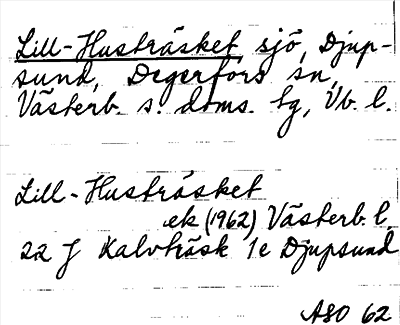 Lill-Husträsket, sjö, Djup-
sund, Degerfors sn,
Västerb. s. doms. tg, Vb. l.
Lill-Husträsket
ek (1962) Västerb. l.
22 J Kalvträsk 1e Djupsund
ASO 62